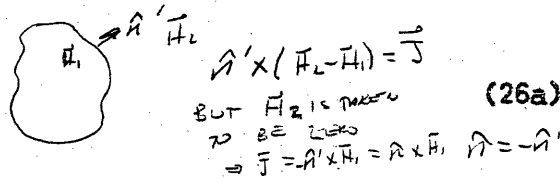 n̂' H⃗₂
H⃗₁
n̂' × (H⃗₂ - H⃗₁) = J⃗
BUT H⃗₂ IS TAKEN
TO BE ZERO
(26a)
⇒ J⃗ = -n̂' × H⃗₁ = n̂ × H⃗₁ n̂ = -n̂'